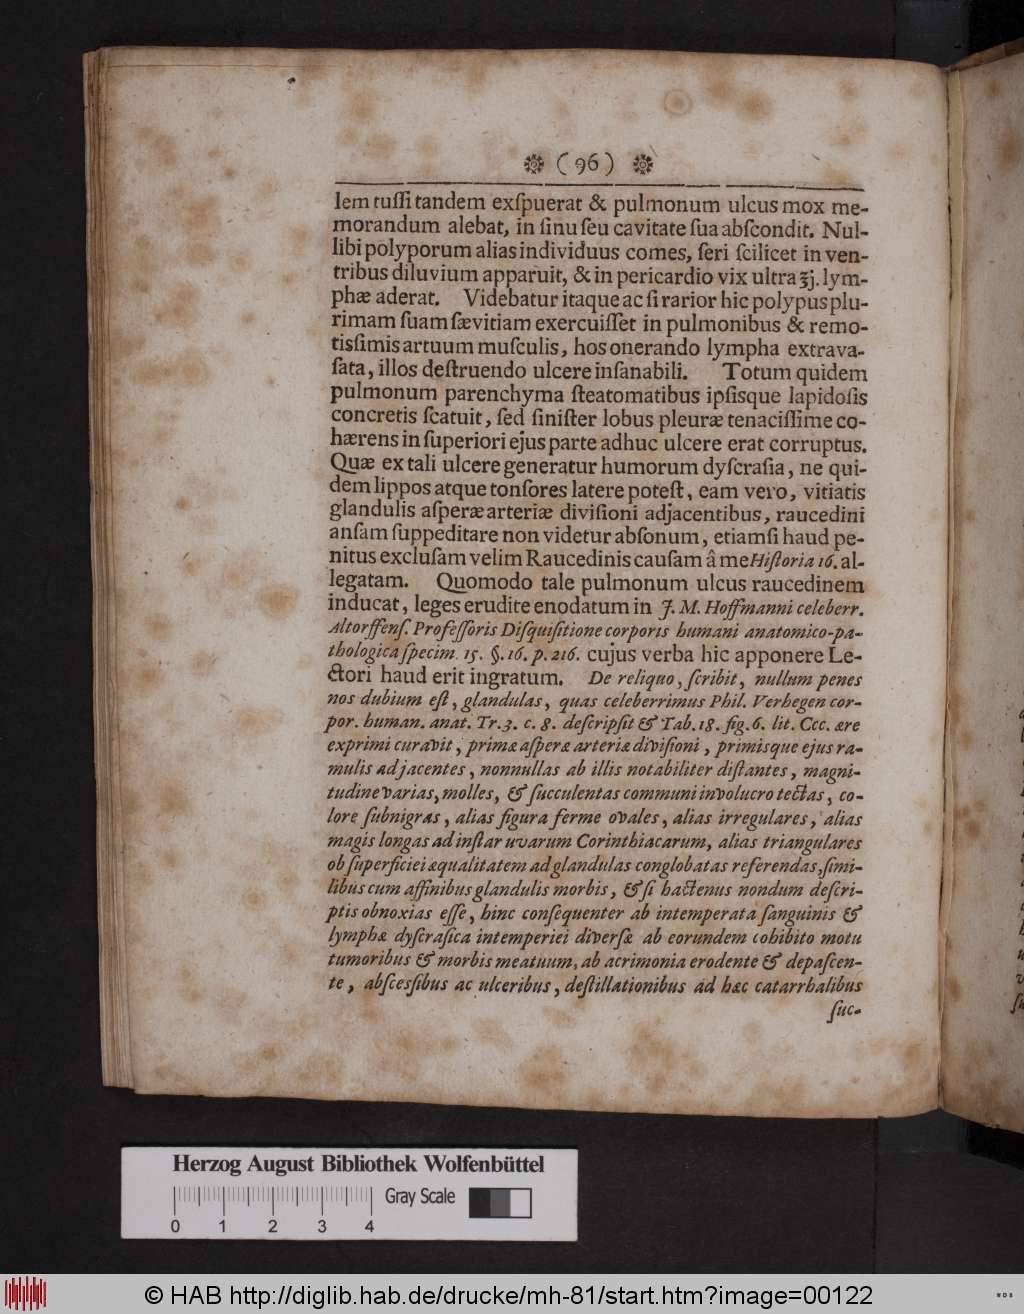 ( 96 )
lem tuſſi tandem exſpuerat & pulmonum ulcus mox me-
morandum alebat, in ſinu ſeu cavitate ſua abſcondit. Nul-
libi polyporum alias individuus comes, ſeri ſcilicet in ven-
tribus diluvium apparuit, & in pericardio vix ultra ℥j. lym-
phæ aderat. Videbatur itaque ac ſi rarior hic polypus plu-
rimam ſuam ſævitiam exercuiſſet in pulmonibus & remo-
tisſimis artuum muſculis, hos onerando lympha extrava-
ſata, illos deſtruendo ulcere inſanabili. Totum quidem
pulmonum parenchyma ſteatomatibus ipſisque lapidoſis
concretis ſcatuit, ſed ſiniſter lobus pleuræ tenaciſſime co-
hærens in ſuperiori ejus parte adhuc ulcere erat corruptus.
Quæ ex tali ulcere generatur humorum dyſcraſia, ne qui-
dem lippos atque tonſores latere poteſt, eam vero, vitiatis
glandulis aſperæ arteriæ diviſioni adjacentibus, raucedini
anſam ſuppeditare non videtur abſonum, etiamſi haud pe-
nitus excluſam velim Raucedinis cauſam â me Hiſtoria 16. al-
legatam. Quomodo tale pulmonum ulcus raucedinem
inducat, leges erudite enodatum in J. M. Hoffmanni celeberr.
Altorffenſ. Profeſſoris Diſquiſitione corporis humani anatomico-pa-
thologica ſpecim. 15. §. 16. p. 216. cujus verba hic apponere Le-
ctori haud erit ingratum. De reliquo, ſcribit, nullum penes
nos dubium eſt, glandulas, quas celeberrimus Phil. Verhegen cor-
por. human. anat. Tr. 3. c. 8. deſcripſit & Tab. 18. fig. 6. lit. Ccc. ære
exprimi curavit, primæ aſperæ arteriæ diviſioni, primisque ejus ra-
mulis adjacentes, nonnullas ab illis notabiliter diſtantes, magni-
tudine varias, molles, & ſucculentas communi involucro tectas, co-
lore ſubnigras, alias figura ferme ovales, alias irregulares, alias
magis longas ad inſtar uvarum Corinthiacarum, alias triangulares
ob ſuperficiei æqualitatem ad glandulas conglobatas referendas, ſimi-
libus cum affinibus glandulis morbis, & ſi hactenus nondum deſcri-
ptis obnoxias eſſe, hinc conſequenter ab intemperata ſanguinis &
lymphæ dyſcraſica intemperiei diverſæ ab eorundem cohibito motu
tumoribus & morbis meatuum, ab acrimonia erodente & depaſcen-
te, abſcesſibus ac ulceribus, deſtillationibus ad hæc catarrhalibus
ſuc-
Herzog August Bibliothek Wolfenbüttel
Gray Scale
0 1 2 3 4
© HAB http://diglib.hab.de/drucke/mh-81/start.htm?image=00122